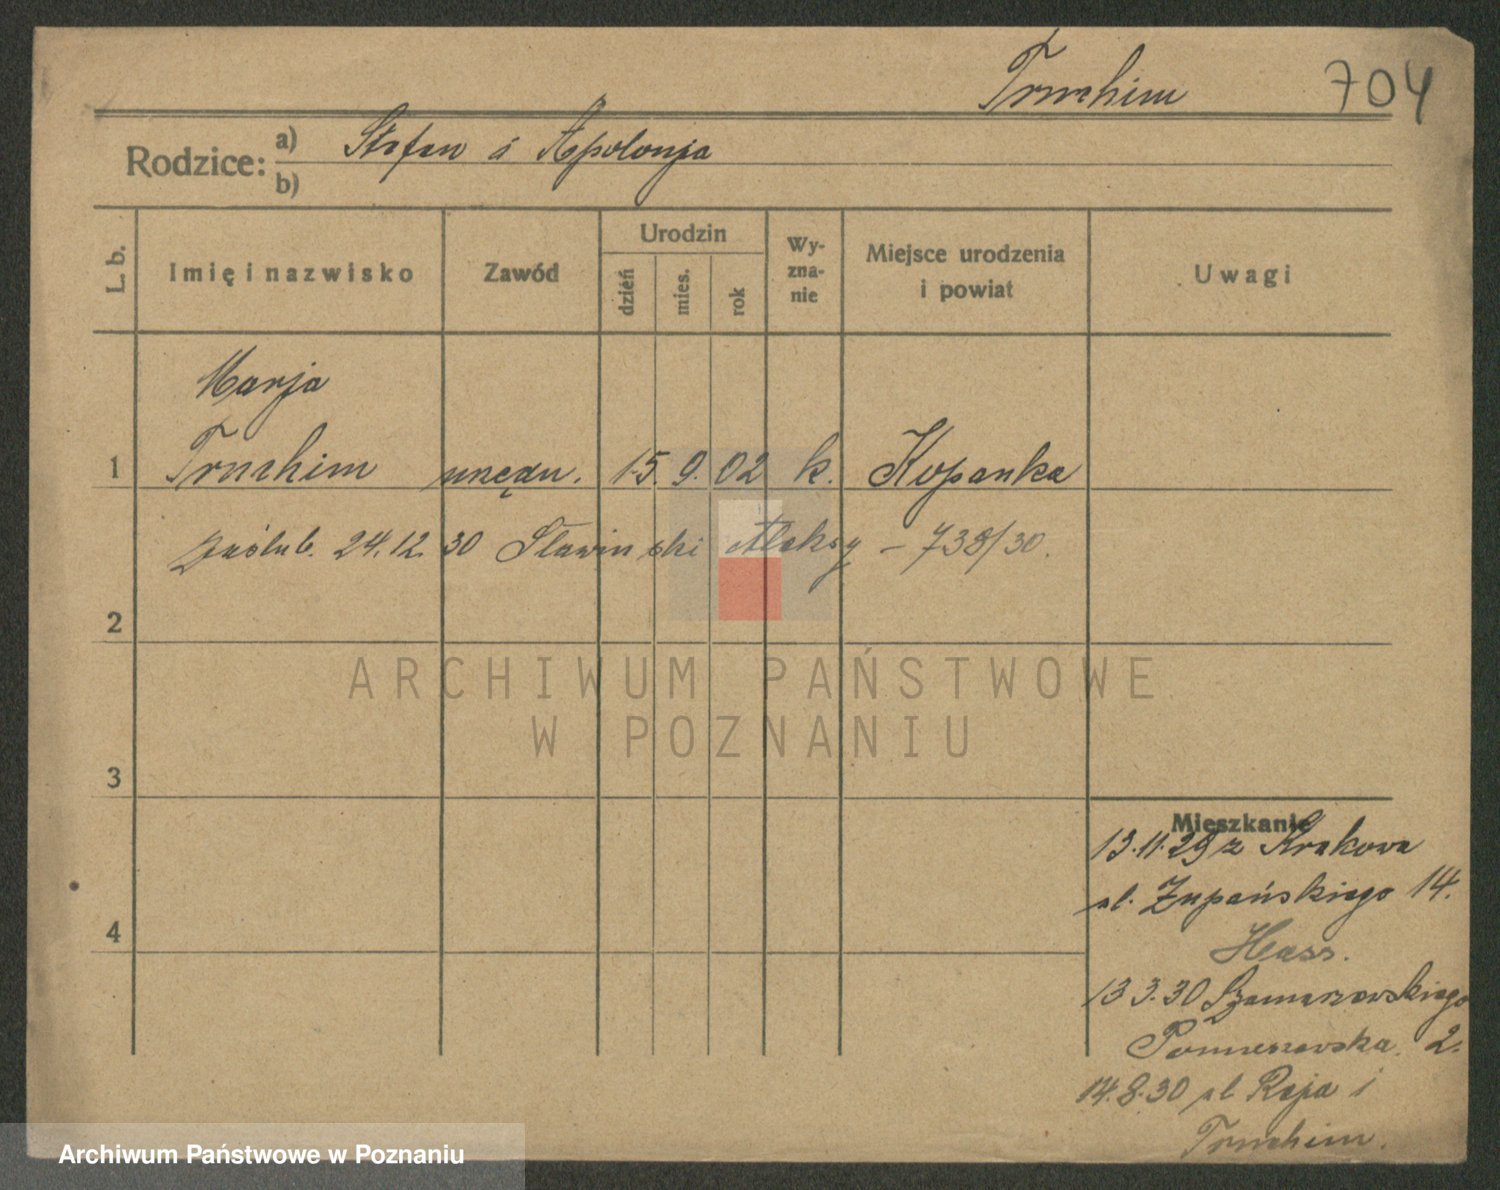 Truchim 704
Rodzice: a) Stefan i Apolonja
b)
L. b.
Imię i nazwisko
Zawód
Urodzin
dzień
mies.
rok
Wy-
zna-
nie
Miejsce urodzenia
i powiat
Uwagi
Marja
1 Truchim urzędn. 15. 9. 02 k. Kopanka
zaślub. 24.12.30 Sławiński Aleksy – 738/30.
2
ARCHIWUM PAŃSTWOWE
W POZNANIU
3
4
Mieszkanie
13.11.29 z Krakowa
ul. Żupańskiego 14.
Hass.
13 3.30 Szamarzewskiego
2.
14.8.30 ul Reja 1
Truchim.
Archiwum Państwowe w Poznaniu